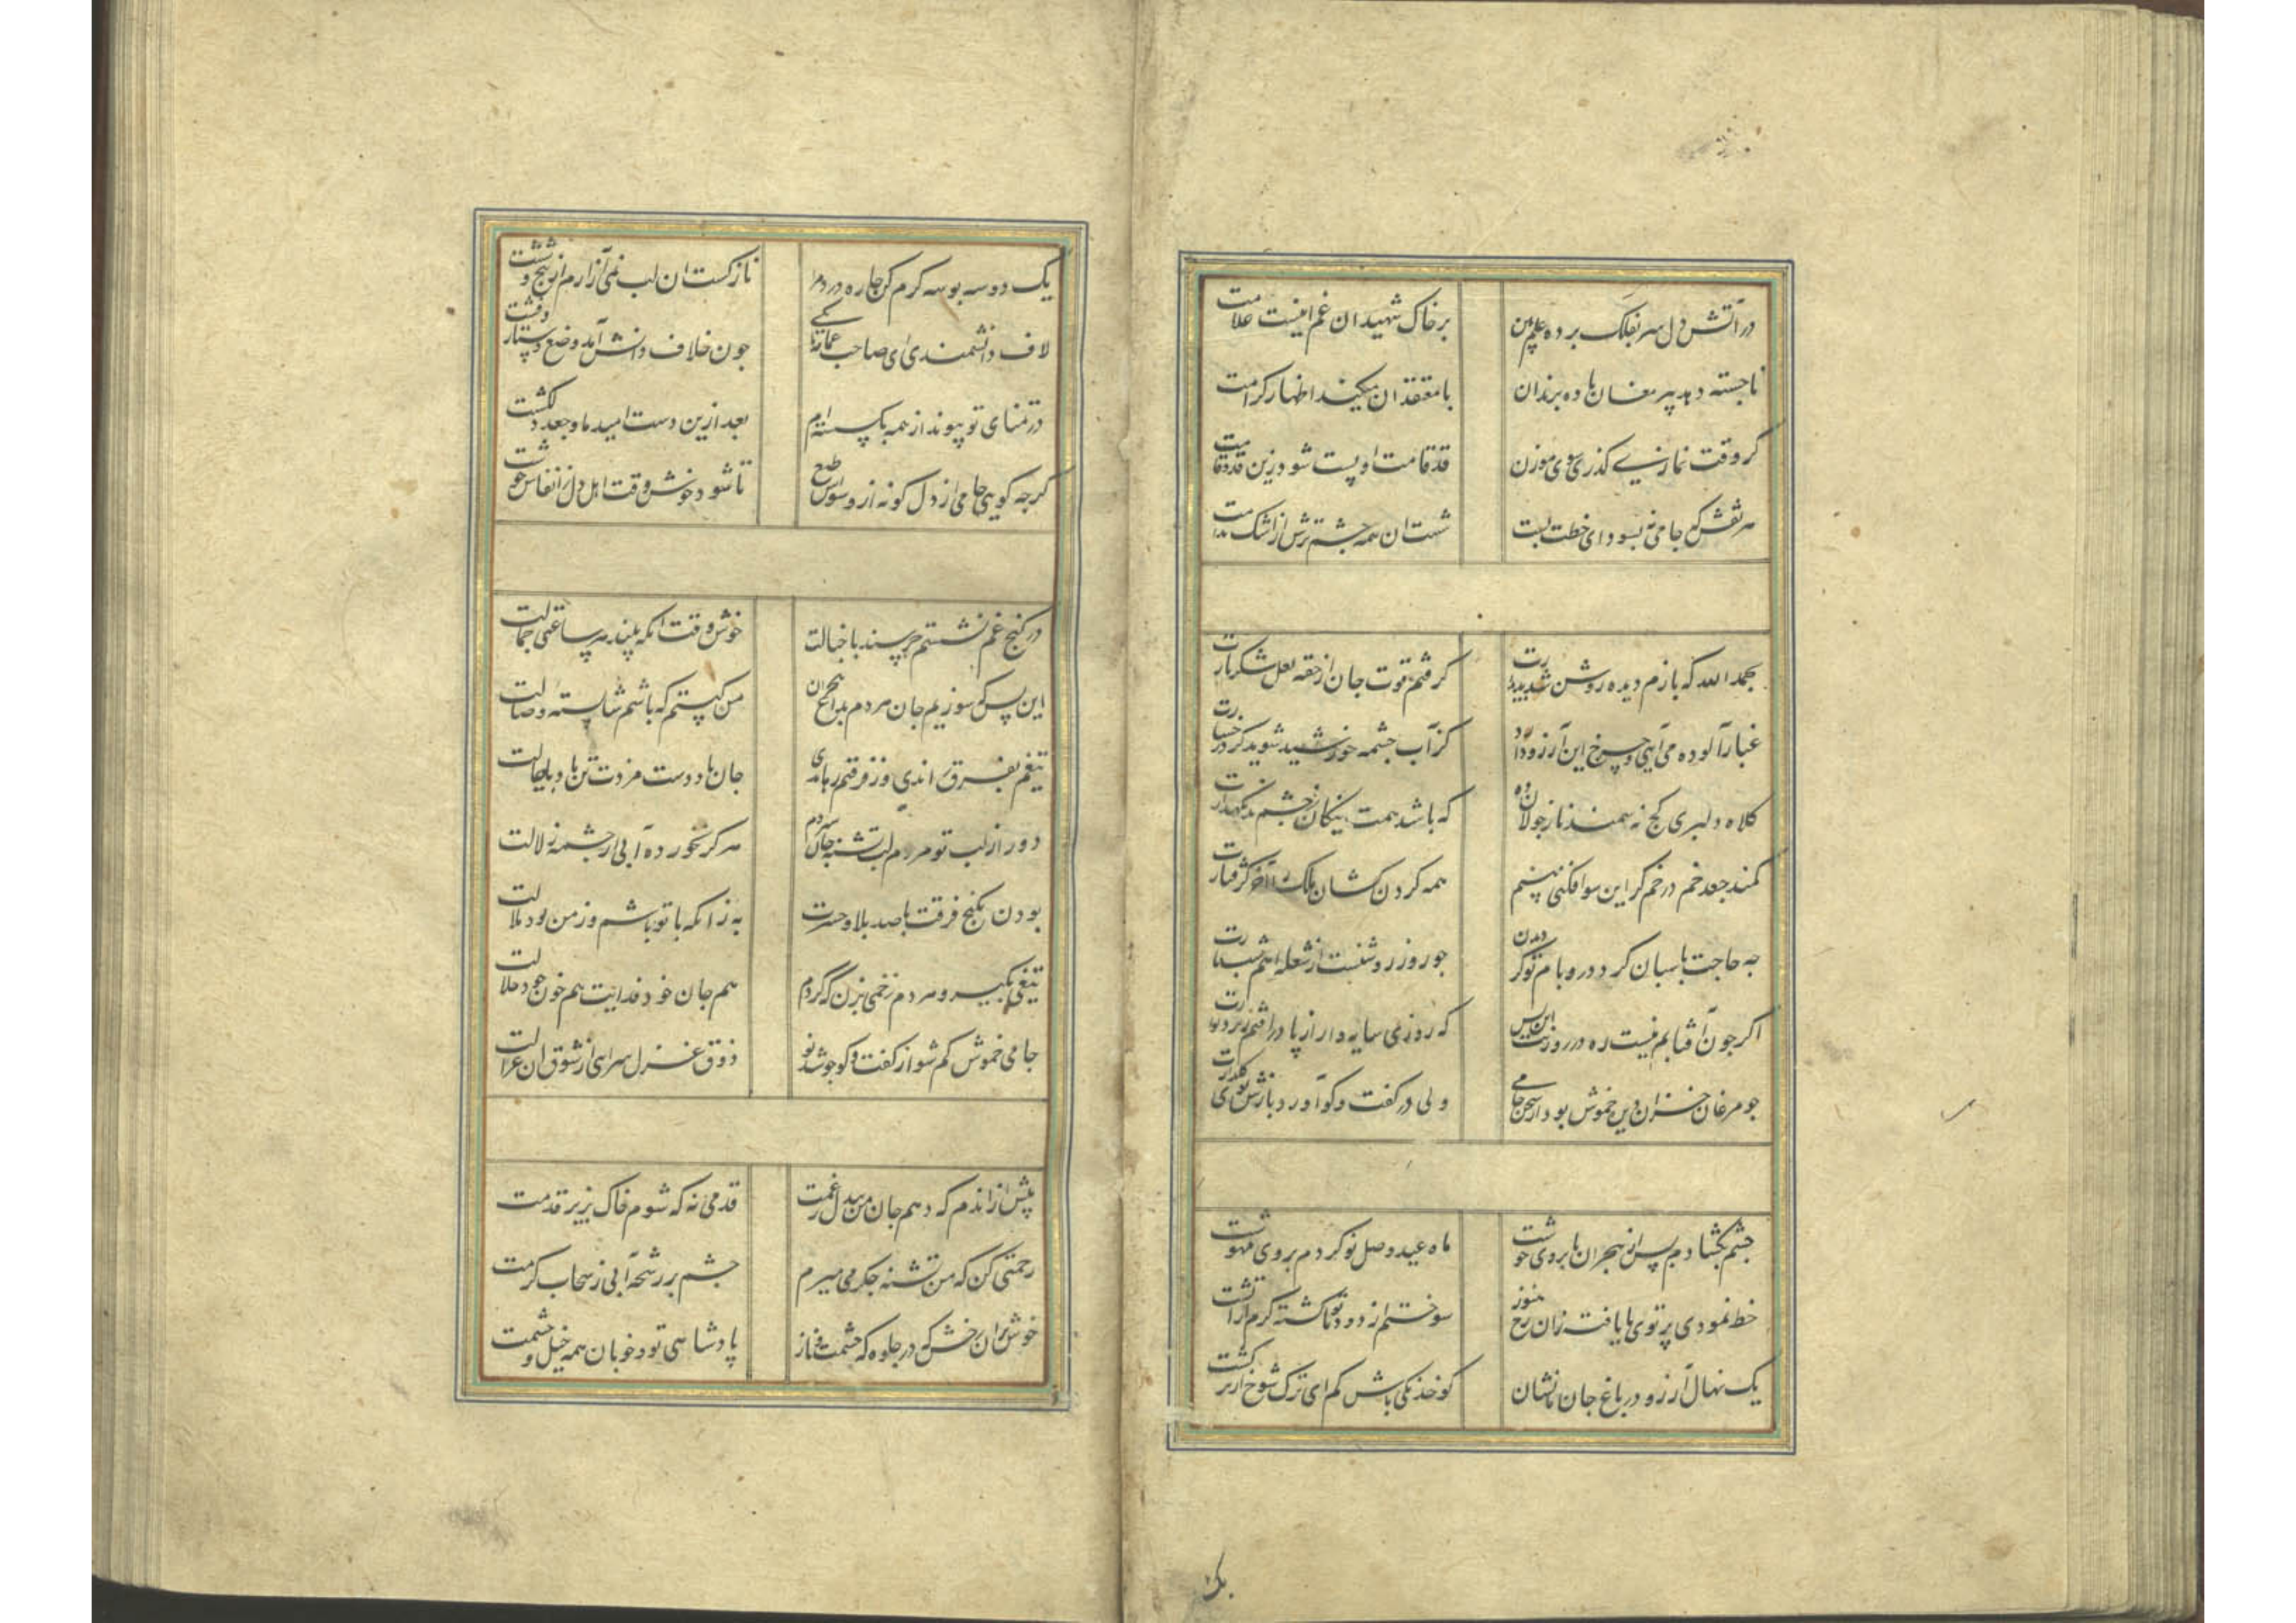 در آتش دل سر بفلک برده علم بین
بر خاک شهیدان غم اینست علامت
ناجسته دهد پیر مغان باده برندان
با معتقدان میکند اظهار کرامت
کر وقت نماز کذری سوی موزن
قد قامت او پست شود زین قد و قامت
هر نقش که جامی نه بسودای خطت بست
شست ان همه چشم ترش از اشک ندامت
بحمد الله که بازم دیده روشن شد بدیدارت
کرفتم قوت جان از حقه لعل شکربارت
غبار آلوده می آیی و چرخ این آرزو دارد
کز آب چشمه خورشید شوید کرد رخسارت
کلاه دلبری کج نه سمند ناز جولان ده
که باشد همت نیکان ز چشم بد نکهدارت
کمند جعد خم در خم کر این سو افکنی بینم
همه کردن کشان ملک را آخر کرفتارت
چه حاجت پاسبان کرد در و بام تو کردیدن
چو روز روشنست از شعله آهم شب تارت
اکر چون آفتابم نیست ره در روزنت این بس
که روزی سایه وار از پا در افتم زیر دیوارت
چو مرغان خزان دیده خموش بود از سخن جامی
ولی در کفت و کو آورد بازش بوی کلزارت
چشم بکشادم پس از هجران بابروی خوشت
ماه عید وصل نو کردم بروی مهوشت
خط نمودی پرتوی نا یافته زان رخ هنوز
سوختم از دود تو نا کشته کرم از آتشت
یک نهال آرزو در باغ جان ننشان
کو خدنکی باش کم ای ترک شوخ از ترکشت
بک
یک دو سه بوسه کرم کن چاره دردم
نازکست ان لب نمی آزارم از پنج و ششت
لاف دانشمندی ای صاحب عمامه تا کی
چون خلاف دانش آمد وضع دستار و فشت
در تمنای تو پیوند از همه بکسسته ام
بعد ازین دست امید ما و جعد دلکشت
کرچه کویی جامی از دل کو نه از وسواس طبع
تا شود خوش وقت اهل دل ز انفاس خوشت
در کنج غم نشستم خرسند با خیالت
خوش وقت آنکه بیند هر ساعتی جمالت
این بس که سوزیم جان هردم بداغ هجران
من کیستم که باشم شایسته وصالت
تیغم بفرق راندی وز فرقتم رهاندی
جان باد دوست مزدت تن باد پایمالت
دور از لب تو مردم لب تشنه جان سپردم
هرکز نخورده آبی از چشمه زلالت
بودن بکنج فرقت با صد بلا و حسرت
به زانکه با تو باشم وز من بود ملالت
تیغی بکیر و هردم زخمی بزن که کردم
هم جان خود فدایت هم خون خود حلالت
جامی خموش کم شو از کفت و کو چو شد نو
ذوق غزل سرایی از شوق ان غزالت
پیش ازاندم که دهم جان من بیدل ز غمت
قدمی نه که شوم خاک بزیر قدمت
رحمتی کن که من تشنه جکر می میرم
چشم بر رشحه آبی ز سحاب کرمت
خوش بران رخش که در جلوه که حشمت و ناز
پادشاهی تو و خوبان همه خیل و حشمت